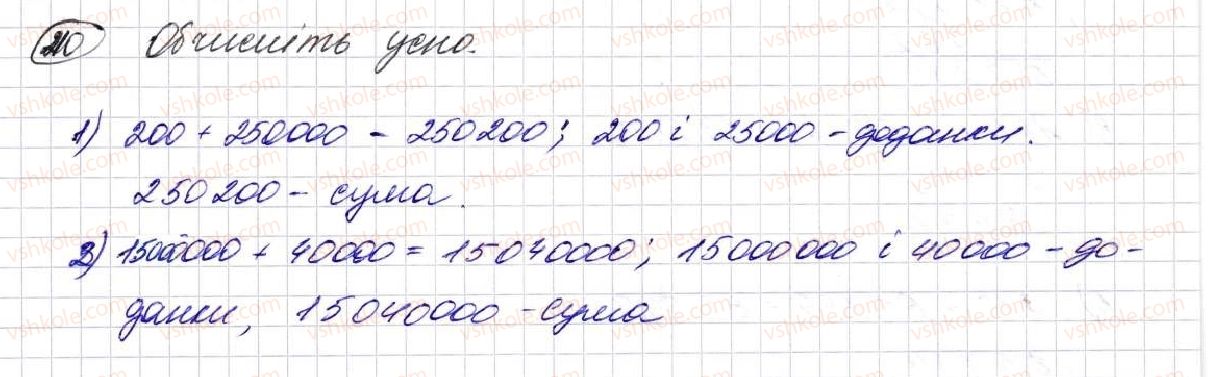 210 Обчисліть усно.
1) 200 + 250000 - 250200; 200 і 25000 - доданки.
250200 - сума.
2) 15000000 + 40000 = 15040000; 15000000 і 40000 - до-
данки, 15040000 - сума